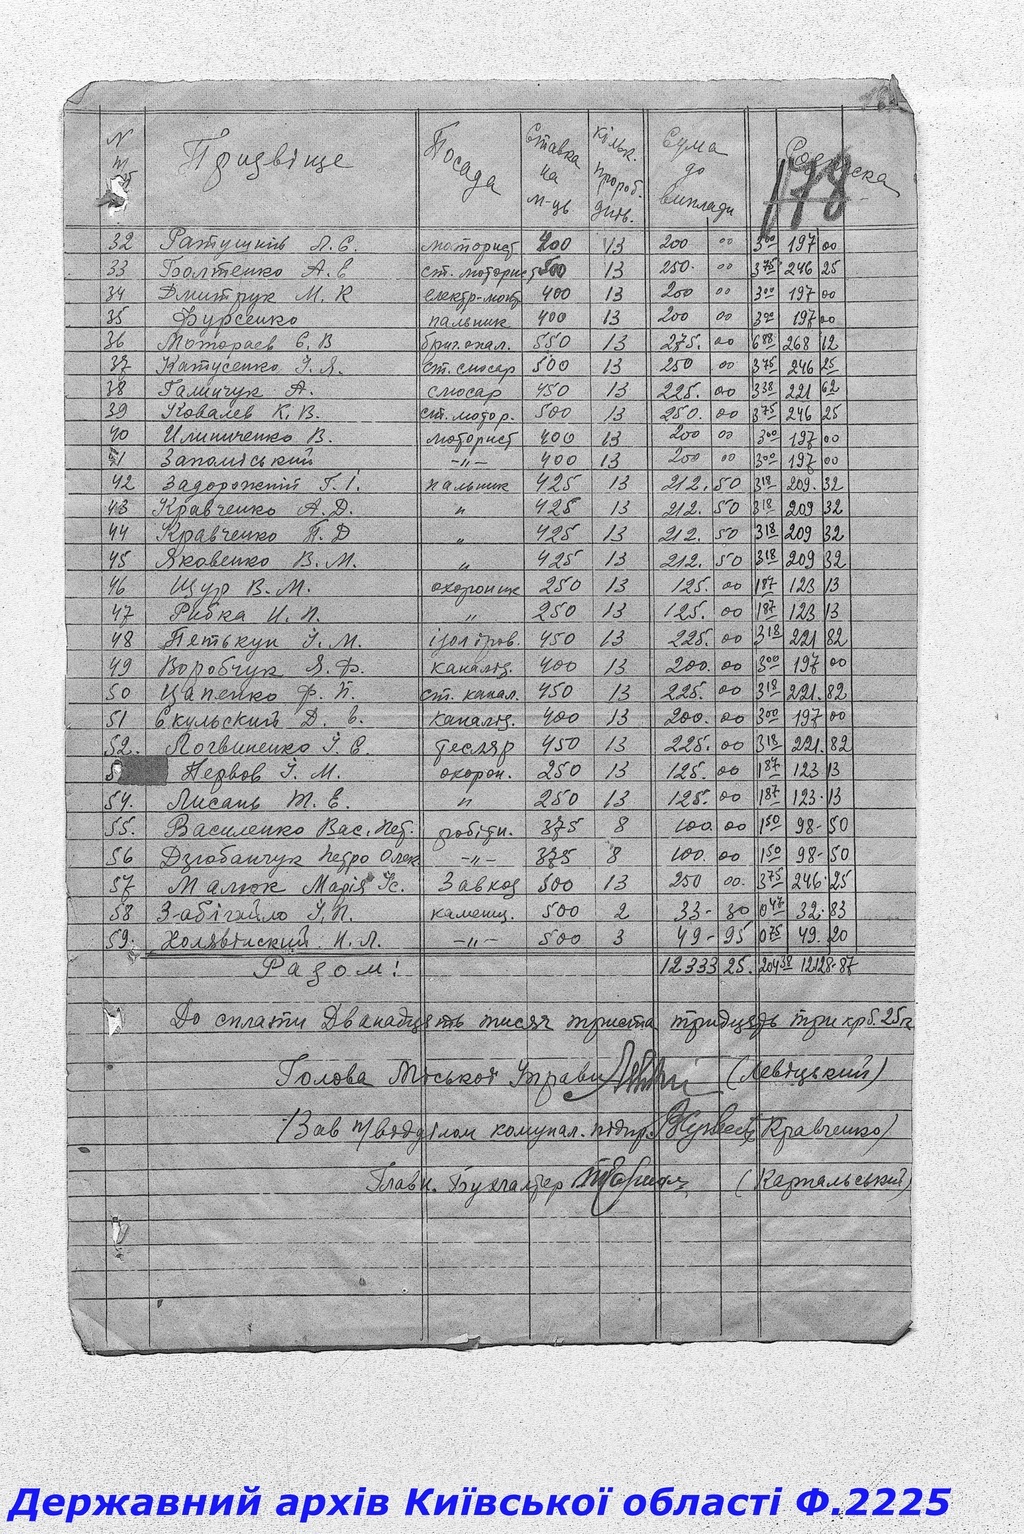 N п/п Призвіще Посада Ставка на м-ць Кільк. пророб. днів. Сума до виплади Розписка
178
32 Ратушнів Л. Є. моторист 400 13 200 00 3 00 197 00
33 Болтенко А. Є ст. моторист 500 13 250. 00 3 75 246 25
34 Дмитрук М. К електр-монт 400 13 200 00 3 00 197 00
35 Фурсенко пальник 400 13 200 00 3 00 197 00
36 Мотораев Є. В бриг. опал. 550 13 275. 00 6 88 268 12
37 Катусенко І. Я. ст. слюсар 500 13 250 00 3 75 246 25
38 Галичук А. слюсар 450 13 225. 00 3 38 221 62
39 Ковалев К. В. ст. мотор. 500 13 250. 00 3 75 246 25
40 Илипиченко В. моторист 400 13 200 00 3 00 197 00
41 Западіський -"- 400 13 200 00 3 00 197 00
42 Задорожній Г. І. пальник 425 13 212. 50 3 18 209. 32
43 Кравченко А. Д. " 425 13 212. 50 3 18 209 32
44 Кравченко П. Д " 425 13 212. 50 3 18 209 32
45 Яковенко В. М. " 425 13 212. 50 3 18 209 32
46 Щур В. М. охоронник 250 13 125. 00 1 87 123 13
47 Рибка И. П. " 250 13 125. 00 1 87 123 13
48 Петькун І. М. ізоліров. 450 13 225. 00 3 18 221 82
49 Воробчук Я. Ф. каналіз. 400 13 200. 00 3 00 197 00
50 Цапенко Ф. П. ст. канал. 450 13 225. 00 3 18 221. 82
51 Єкульский Д. Є. каналіз. 400 13 200. 00 3 00 197 00
52. Логвиненко І. Є. тесляр 450 13 225. 00 3 18 221. 82
5 Первов І. М. охорон. 250 13 125. 00 1 87 123 13
54. Лисань Т. Е. " 250 13 125. 00 1 87 123. 13
55. Василенко Вас. Пет. робітн. 375 8 100. 00 1 50 98- 50
56 Дзюбанчук Петро Олек -"- 375 8 100. 00 1 50 98- 50
57 Малюк Марія Ус. Завкоз 500 13 250 00. 3 75 246. 25
58 Забігайло І. П. каменщ. 500 2 33- 30 0 47 32. 83
59. Холявінский И. Л. -"- 500 3 49- 95 0 75 49. 20
Разом! 12333 25. 204 38 12128- 87
До сплати Дванадцять тисяч триста тридцядь три крб. 25 к
Голова Міської Управи (Левіцький)
/Зав п/відділом комунал. підпр. (Кравченко)
Главн. Бухгалтер (Карпальський)
Державний архів Київської області Ф.2225